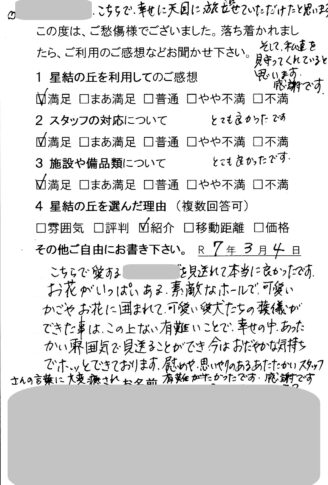 こちらで、幸せに天国に旅立たせていただけたと思います
この度は、ご愁傷様でございました。落ち着かれまし
たら、ご利用のご感想などお聞かせ下さい。
そして、私達を
見守ってくれていると
思います。
感謝です。
1 星結の丘を利用してのご感想
☑満足 □まあ満足 □普通 □やや不満 □不満
2 スタッフの対応について とても良かったです
☑満足 □まあ満足 □普通 □やや不満 □不満
3 施設や備品類について とても良かったです。
☑満足 □まあ満足 □普通 □やや不満 □不満
4 星結の丘を選んだ理由（複数回答可）
□雰囲気 □評判 ☑紹介 □移動距離 □価格
その他ご自由にお書き下さい。 R 7年 3月 4日
こちらで愛する を見送れて本当に良かったです。
お花がいっぱいある、素敵なホールで、可愛い
かごやお花に囲まれて、可愛い愛犬たちの葬儀が
できた事は、この上ない有難いことで、幸せの中、あった
かい雰囲気で見送ることができ今はおだやかな気持ち
でホッとできております。慰めや、思いやりのあるあたたかいスタッフ
さんの言葉に大変癒され お名前 有難がたかったです。感謝です